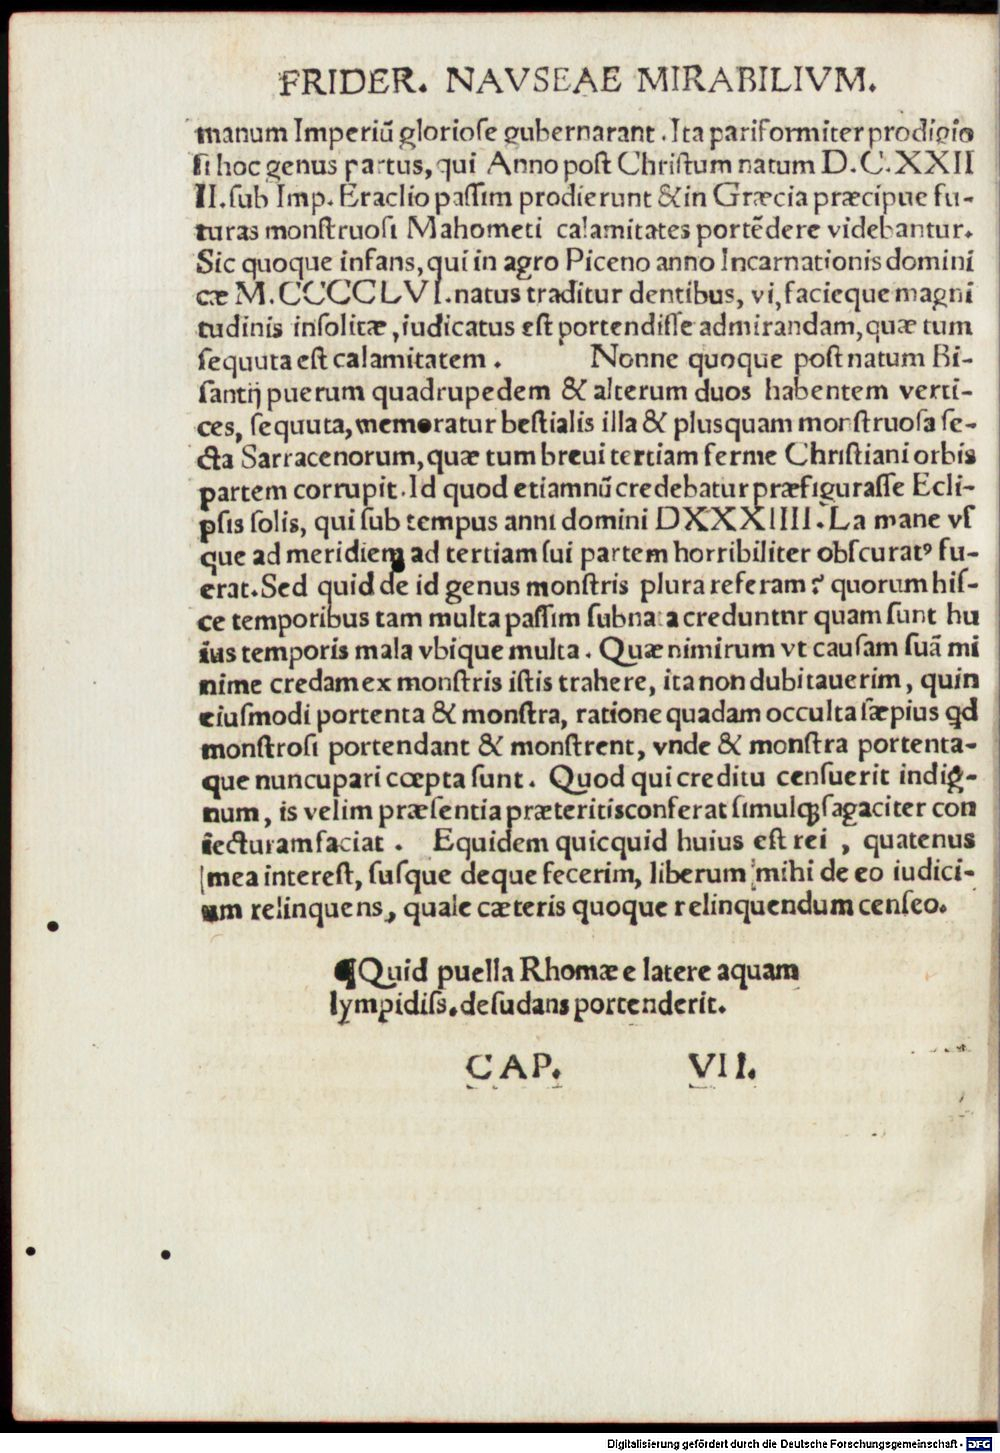 FRIDER. NAVSEAE MIRABILIVM.
manum Imperiũ gloriose gubernarant. Ita pariformiter prodigio
si hoc genus partus, qui Anno post Christum natum D.C.XXII
II. sub Imp. Eraclio passim prodierunt & in Græcia præcipue fu-
turas monstruosi Mahometi calamitates portẽdere videbantur.
Sic quoque infans, qui in agro Piceno anno Incarnationis domini
cæ M.CCCCLVI. natus traditur dentibus, vi, facieque magni
tudinis insolitæ, iudicatus est portendisse admirandam, quæ tum
sequuta est calamitatem. Nonne quoque post natum Bi-
santij puerum quadrupedem & alterum duos habentem verti-
ces, sequuta, memoratur bestialis illa & plusquam monstruosa se-
cta Sarracenorum, quæ tum breui tertiam ferme Christiani orbis
partem corrupit. Id quod etiamnũ credebatur præfigurasse Ecli-
psis solis, qui sub tempus anni domini DXXXIIII. La mane vs
que ad meridiem ad tertiam sui partem horribiliter obscuratꝰ fu-
erat. Sed quid de id genus monstris plura referam? quorum his-
ce temporibus tam multa passim subnata creduntnr quam sunt hu
ius temporis mala vbique multa. Quæ nimirum vt causam suã mi
nime credam ex monstris istis trahere, ita non dubitauerim, quin
eiusmodi portenta & monstra, ratione quadam occulta sæpius qd
monstrosi portendant & monstrent, vnde & monstra portenta-
que nuncupari cœpta sunt. Quod qui creditu censuerit indig-
num, is velim præsentia præteritis conferat simulq; sagaciter con
iecturam faciat. Equidem quicquid huius est rei, quatenus
mea interest, susque deque fecerim, liberum mihi de eo iudici-
um relinquens, quale cæteris quoque relinquendum censeo.
¶ Quid puella Rhomæ e latere aquam
lympidiss. desudans portenderit.
CAP. VII.
Digitalisierung gefördert durch die Deutsche Forschungsgemeinschaft - DFG